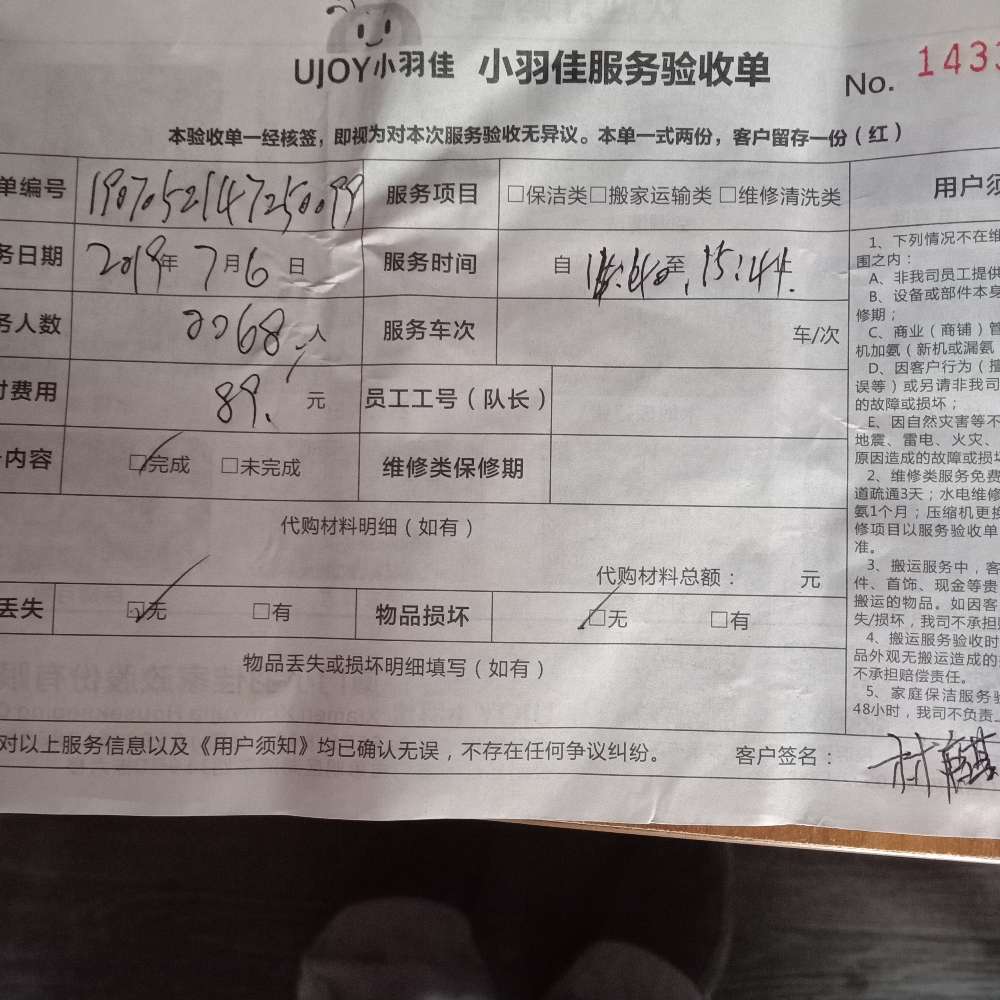 UJOY小羽佳 小羽佳服务验收单 No. 1433
本验收单一经核签，即视为对本次服务验收无异议。本单一式两份，客户留存一份（红）
单编号 1907052147250099 服务项目 □保洁类□搬家运输类 □维修清洗类
务日期 2019年 7月6日 服务时间 自 至 15:44.
务人数 2068人 服务车次 车/次
付费用 89. 元 员工工号（队长）
内容 □完成 □未完成 维修类保修期
代购材料明细（如有）
代购材料总额： 元
丢失 □无 □有 物品损坏 □无 □有
物品丢失或损坏明细填写（如有）
对以上服务信息以及《用户须知》均已确认无误，不存在任何争议纠纷。 客户签名：
用户须
1、下列情况不在维
围之内：
A、非我司员工提供
B、设备或部件本身
修期；
C、商业（商铺）管
机加氨（新机或漏氨
D、因客户行为（擅
误等）或另请非我司
的故障或损坏；
E、因自然灾害等不
地震、雷电、火灾、
原因造成的故障或损坏
2、维修类服务免费
道疏通3天；水电维修
氨1个月；压缩机更换
修项目以服务验收单
准。
3、搬运服务中，客
件、首饰、现金等贵
搬运的物品。如因客
失/损坏，我司不承担
4、搬运服务验收时
品外观无搬运造成的
不承担赔偿责任。
5、家庭保洁服务验
48小时，我司不负责